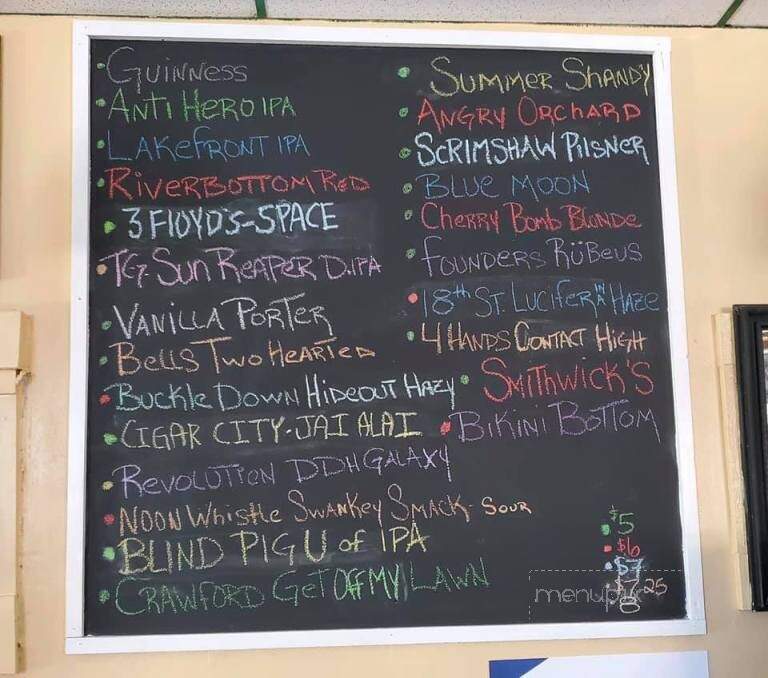 Guinness
Anti Hero IPA
Lakefront IPA
Riverbottom Red
3 Floyd's-Space
TG. Sun Reaper D.IPA
Vanilla Porter
Bells Two Hearted
Buckle Down Hideout Hazy
Cigar City-Jai Alai
Revolution DDH Galaxy
Noon Whistle Swankey Smack-Sour
Blind Pig U of IPA
Crawford Get Off My Lawn
Summer Shandy
Angry Orchard
Scrimshaw Pilsner
Blue Moon
Cherry Bomb Blonde
Founders Rübeus
18th St. Lucifer in a Haze
4 Hands Contact High
Smithwick's
Bikini Bottom
$5
$6
$7
$7.25
8